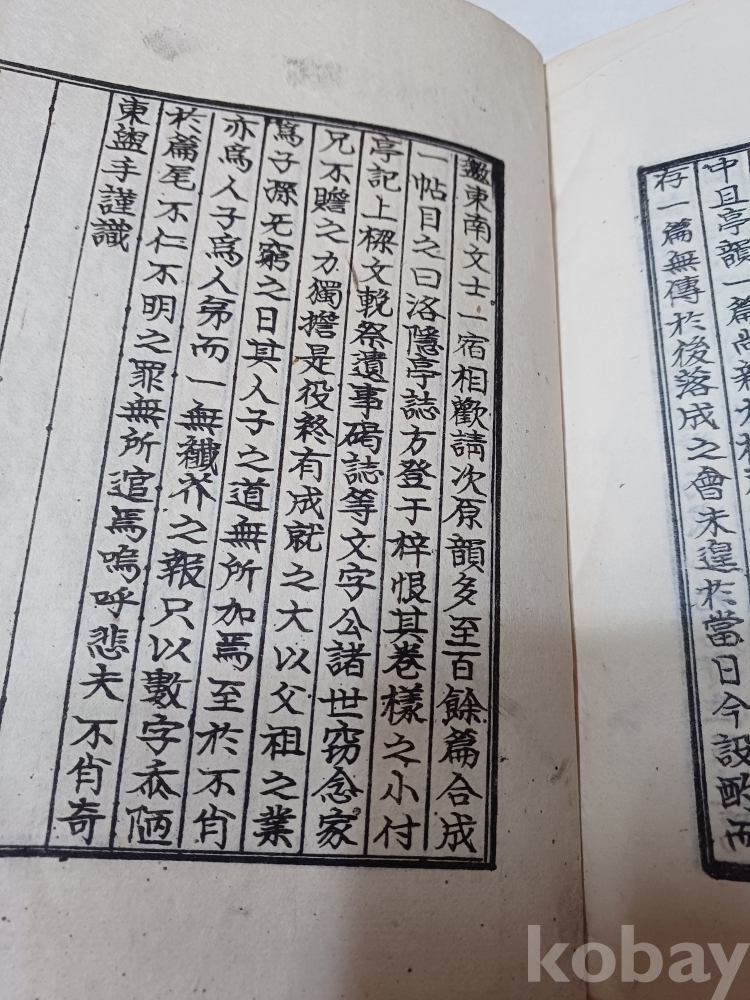 中且亭韻一篇尚新
存一篇無傳於後落成之會未遑於當日今設酌而
邀東南文士一宿相歡請次原韻多至百餘篇合成
一帖目之曰洛隱亭誌方登于梓恨其卷樣之小付
亭記上樑文輓祭遺事碣誌等文字公諸世竊念家
兄不贍之力獨擔是役終有成就之大以父祖之業
爲子孫无窮之日其人子之道無所加焉至於不肖
亦爲人子爲人弟而一無纖芥之報只以數字忝陋
於篇尾不仁不明之罪無所逭焉嗚呼悲夫 不肖奇
東盥手謹識
kobay